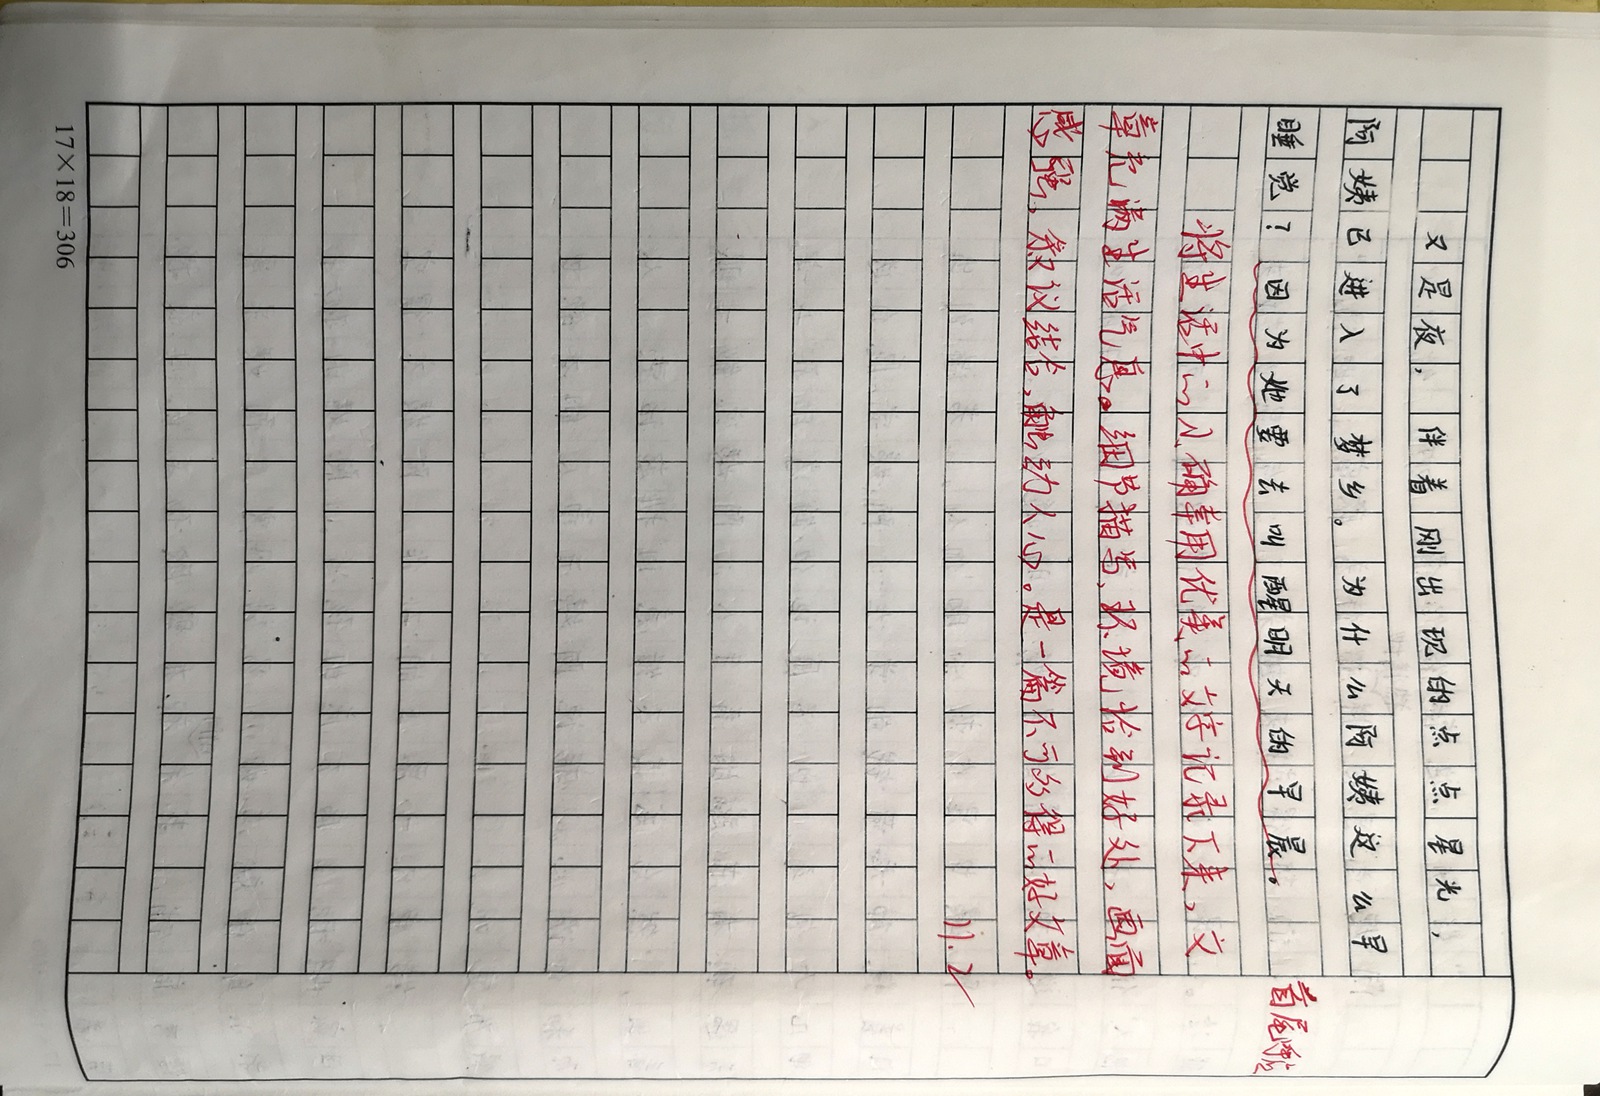 又是夜，伴着刚出现的点点星光，
阿姨已进入了梦乡。为什么阿姨这么早
睡觉？因为她要去叫醒明天的早晨。
首尾呼应
将生活中的人、确幸用优美的文字记录下来，文
章充满生活气息。细节描写、环境恰到好处，画面
感强，叙议结合，触动人心。是一篇不可多得的好文章。
11.2
17×18=306